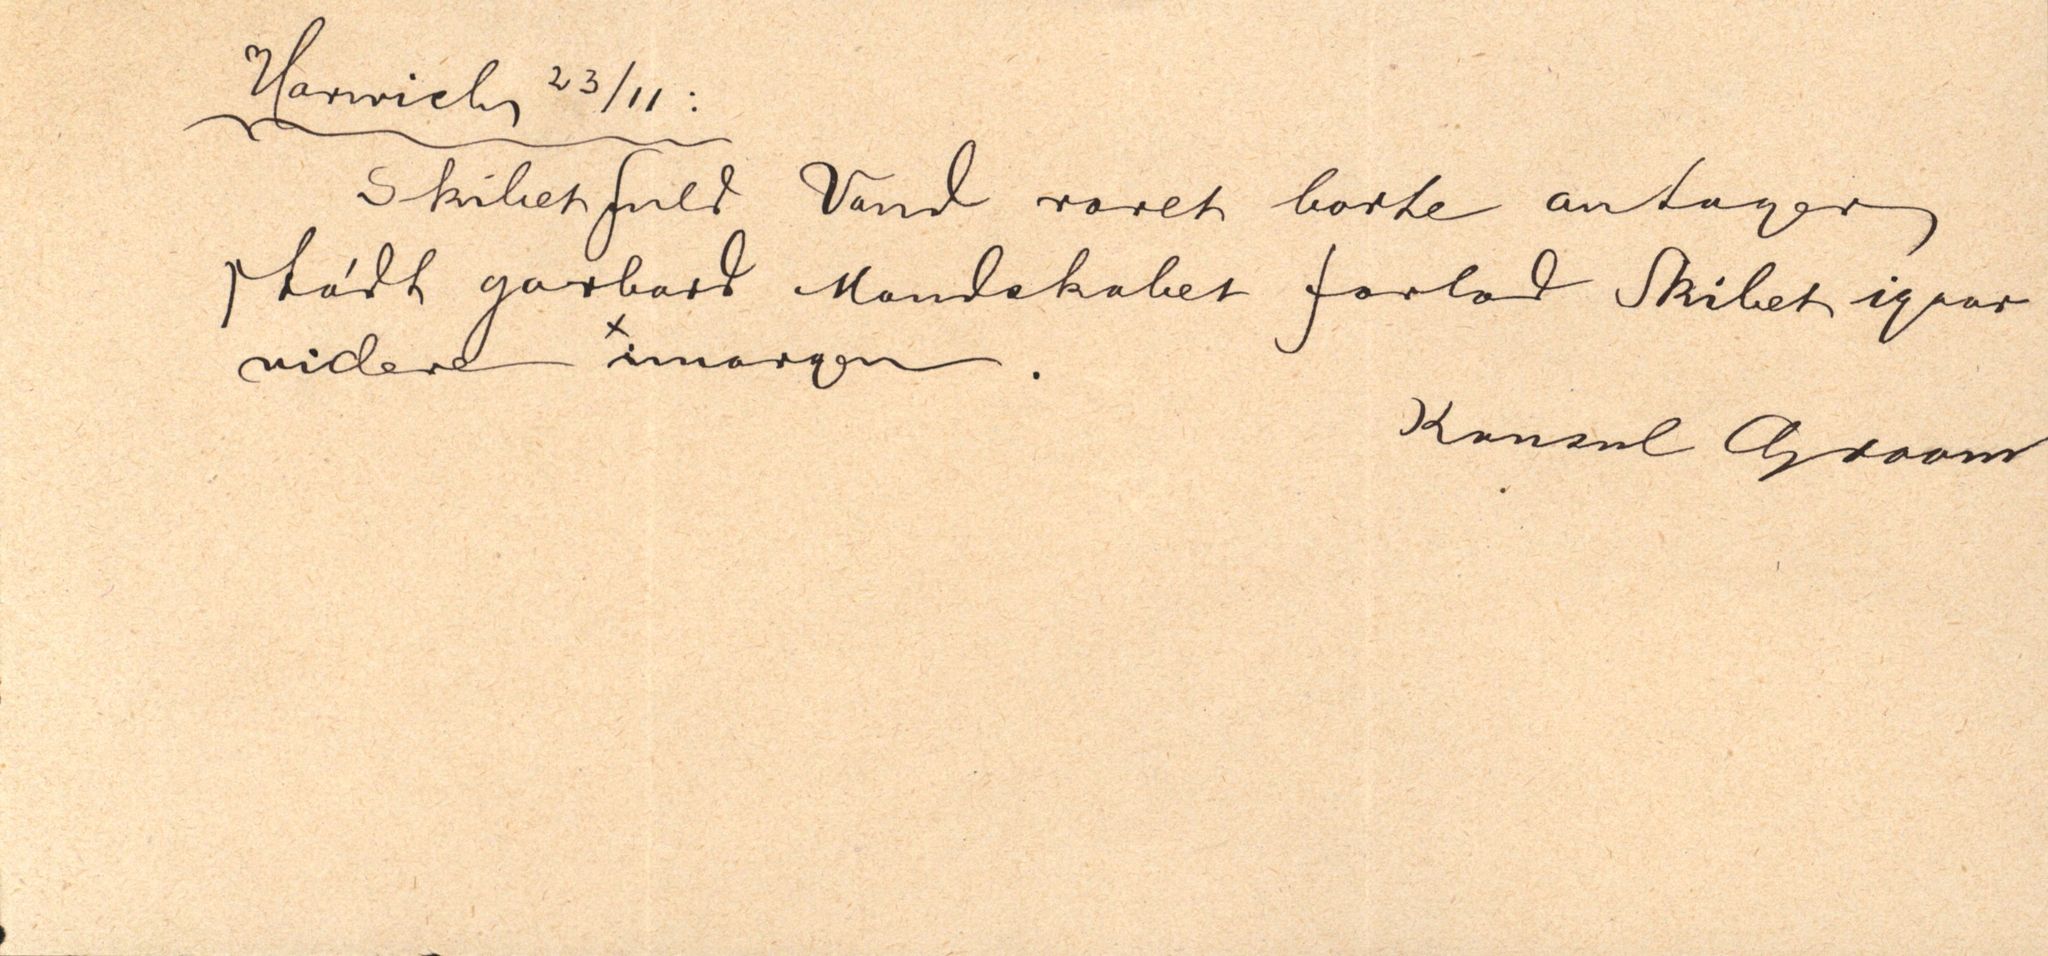 Harwich 23/11:
Skibet fuld Vand roret borte antager
stødt garbord Mandskabet forlod Skibet igaar
videre imorgen.
Konsul Groom